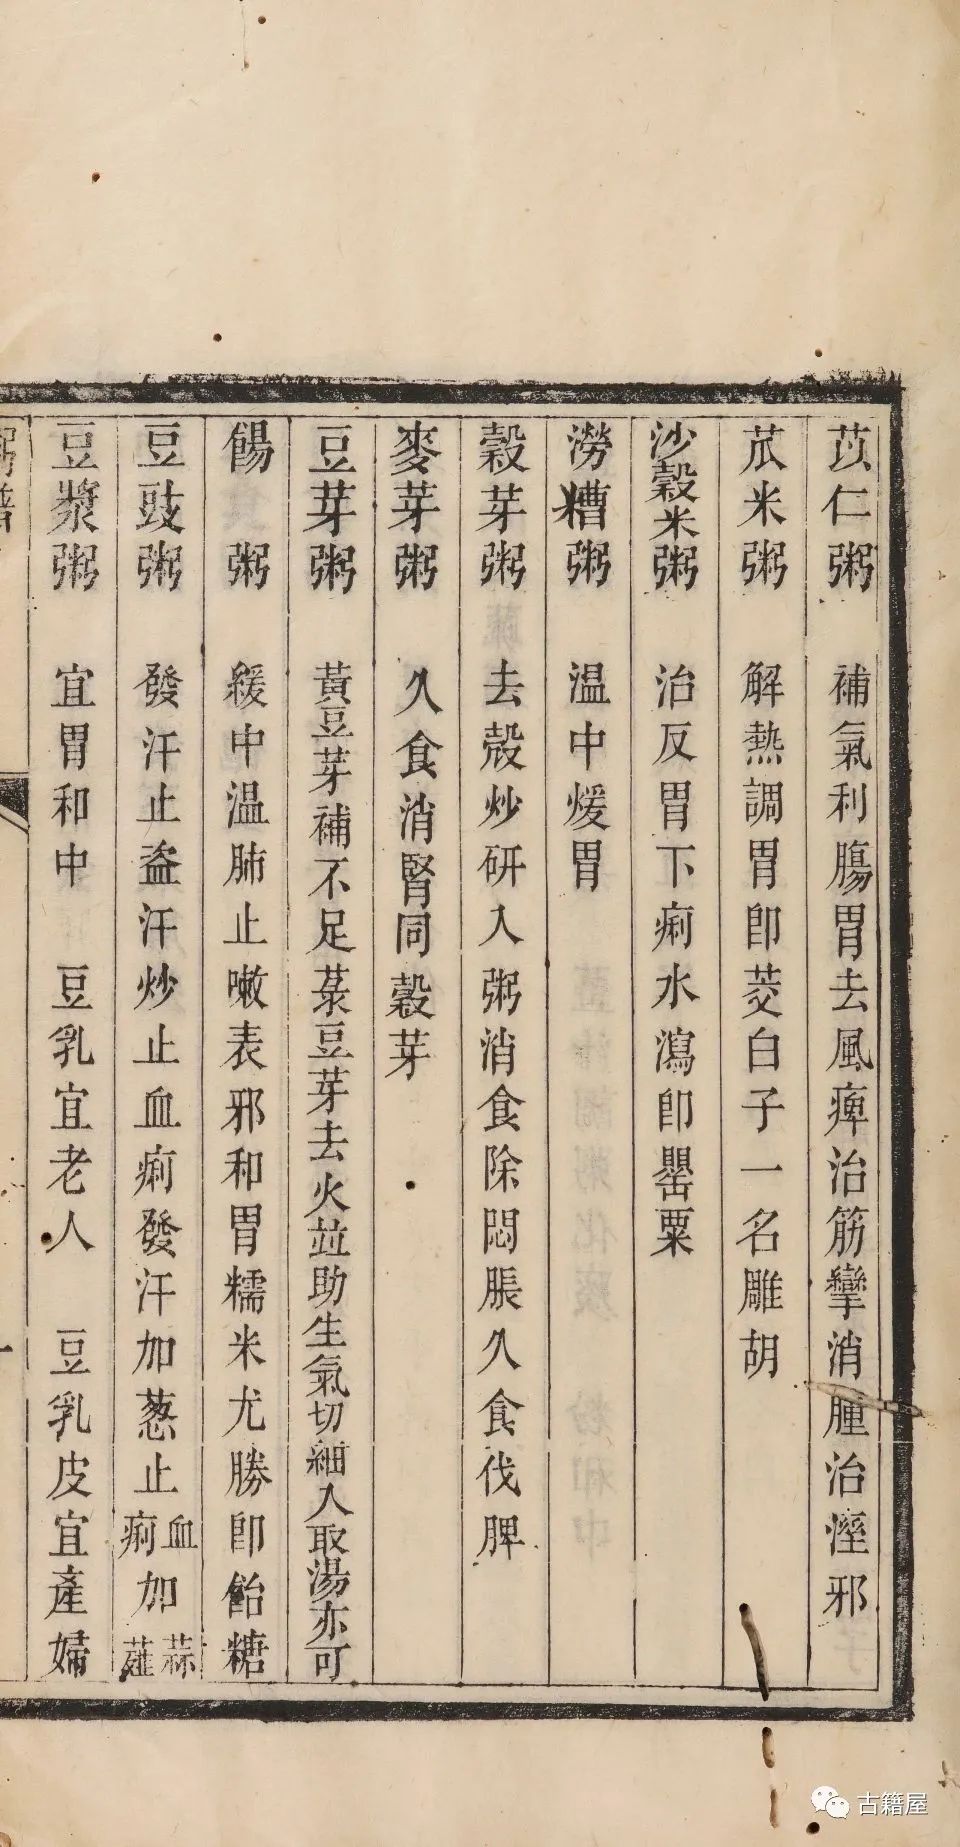 苡仁粥　補氣利腸胃去風痺治筋攣消腫治溼邪
苽米粥　解熱調胃卽茭白子一名雕胡
沙穀米粥　治反胃下痢水瀉卽罌粟
澇糟粥　温中煖胃
穀芽粥　去殼炒研入粥消食除悶脹久食伐脾
麥芽粥　久食消腎同穀芽
豆芽粥　黃豆芽補不足菉豆芽去火並助生氣切細入取湯亦可
餳粥　緩中温肺止嗽表邪和胃糯米尤勝卽飴糖
豆豉粥　發汗止盗汗炒止血痢發汗加葱止血痢加蒜薤
豆漿粥　宜胃和中　豆乳宜老人　豆乳皮宜產婦
粥譜
古籍屋